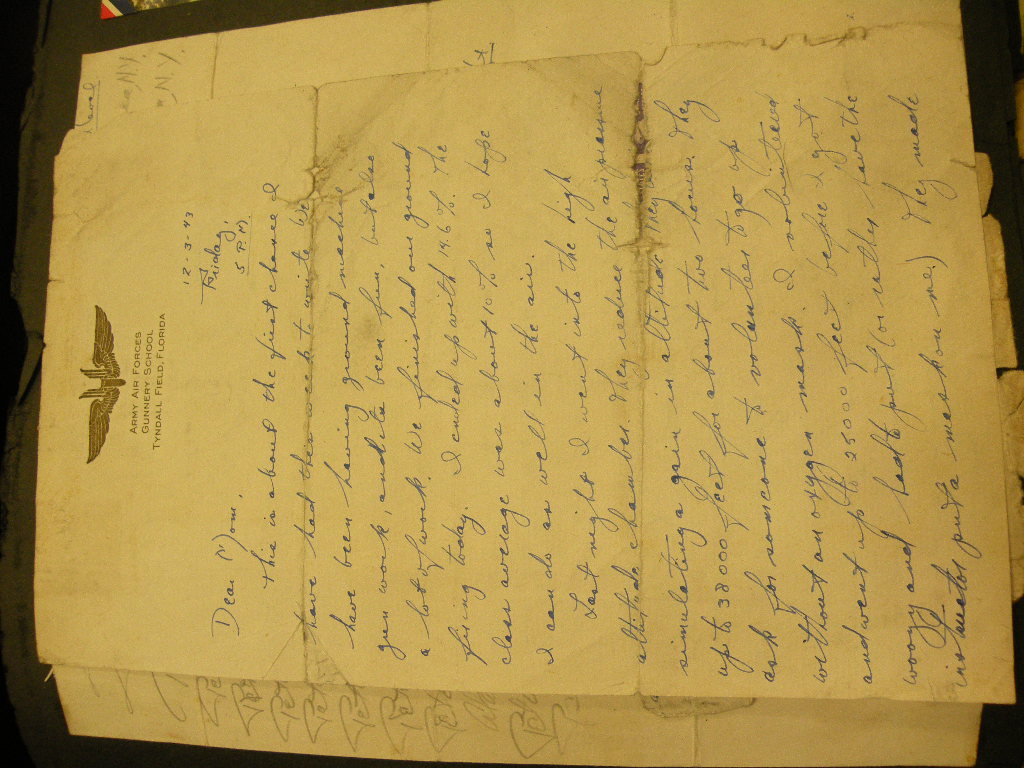 ARMY AIR FORCES
GUNNERY SCHOOL
TYNDALL FIELD, FLORIDA
12-3-43
Friday,
5 P.M.
Dear Mom,
This is about the first chance I
have had this week to write. We
have been having ground machine
gun work, and its been fun, but also
a lot of work. We finished our ground
firing today. I ended up with 14.6%. The
class average was about 10% so I hope
I can do as well in the air.
Last night I went into the high
altitude chamber. They reduce the air pressure
simulating a gain in altitude. They
up to 38000 feet for about two hours. They
ask for someone to volunteer to go up
without an oxygen mask. I volunteered
and went up to 25000 feet before I got
woozy and had to put (or rather have the
instructor put a mask on me.) They made
N.Y.
N.Y.